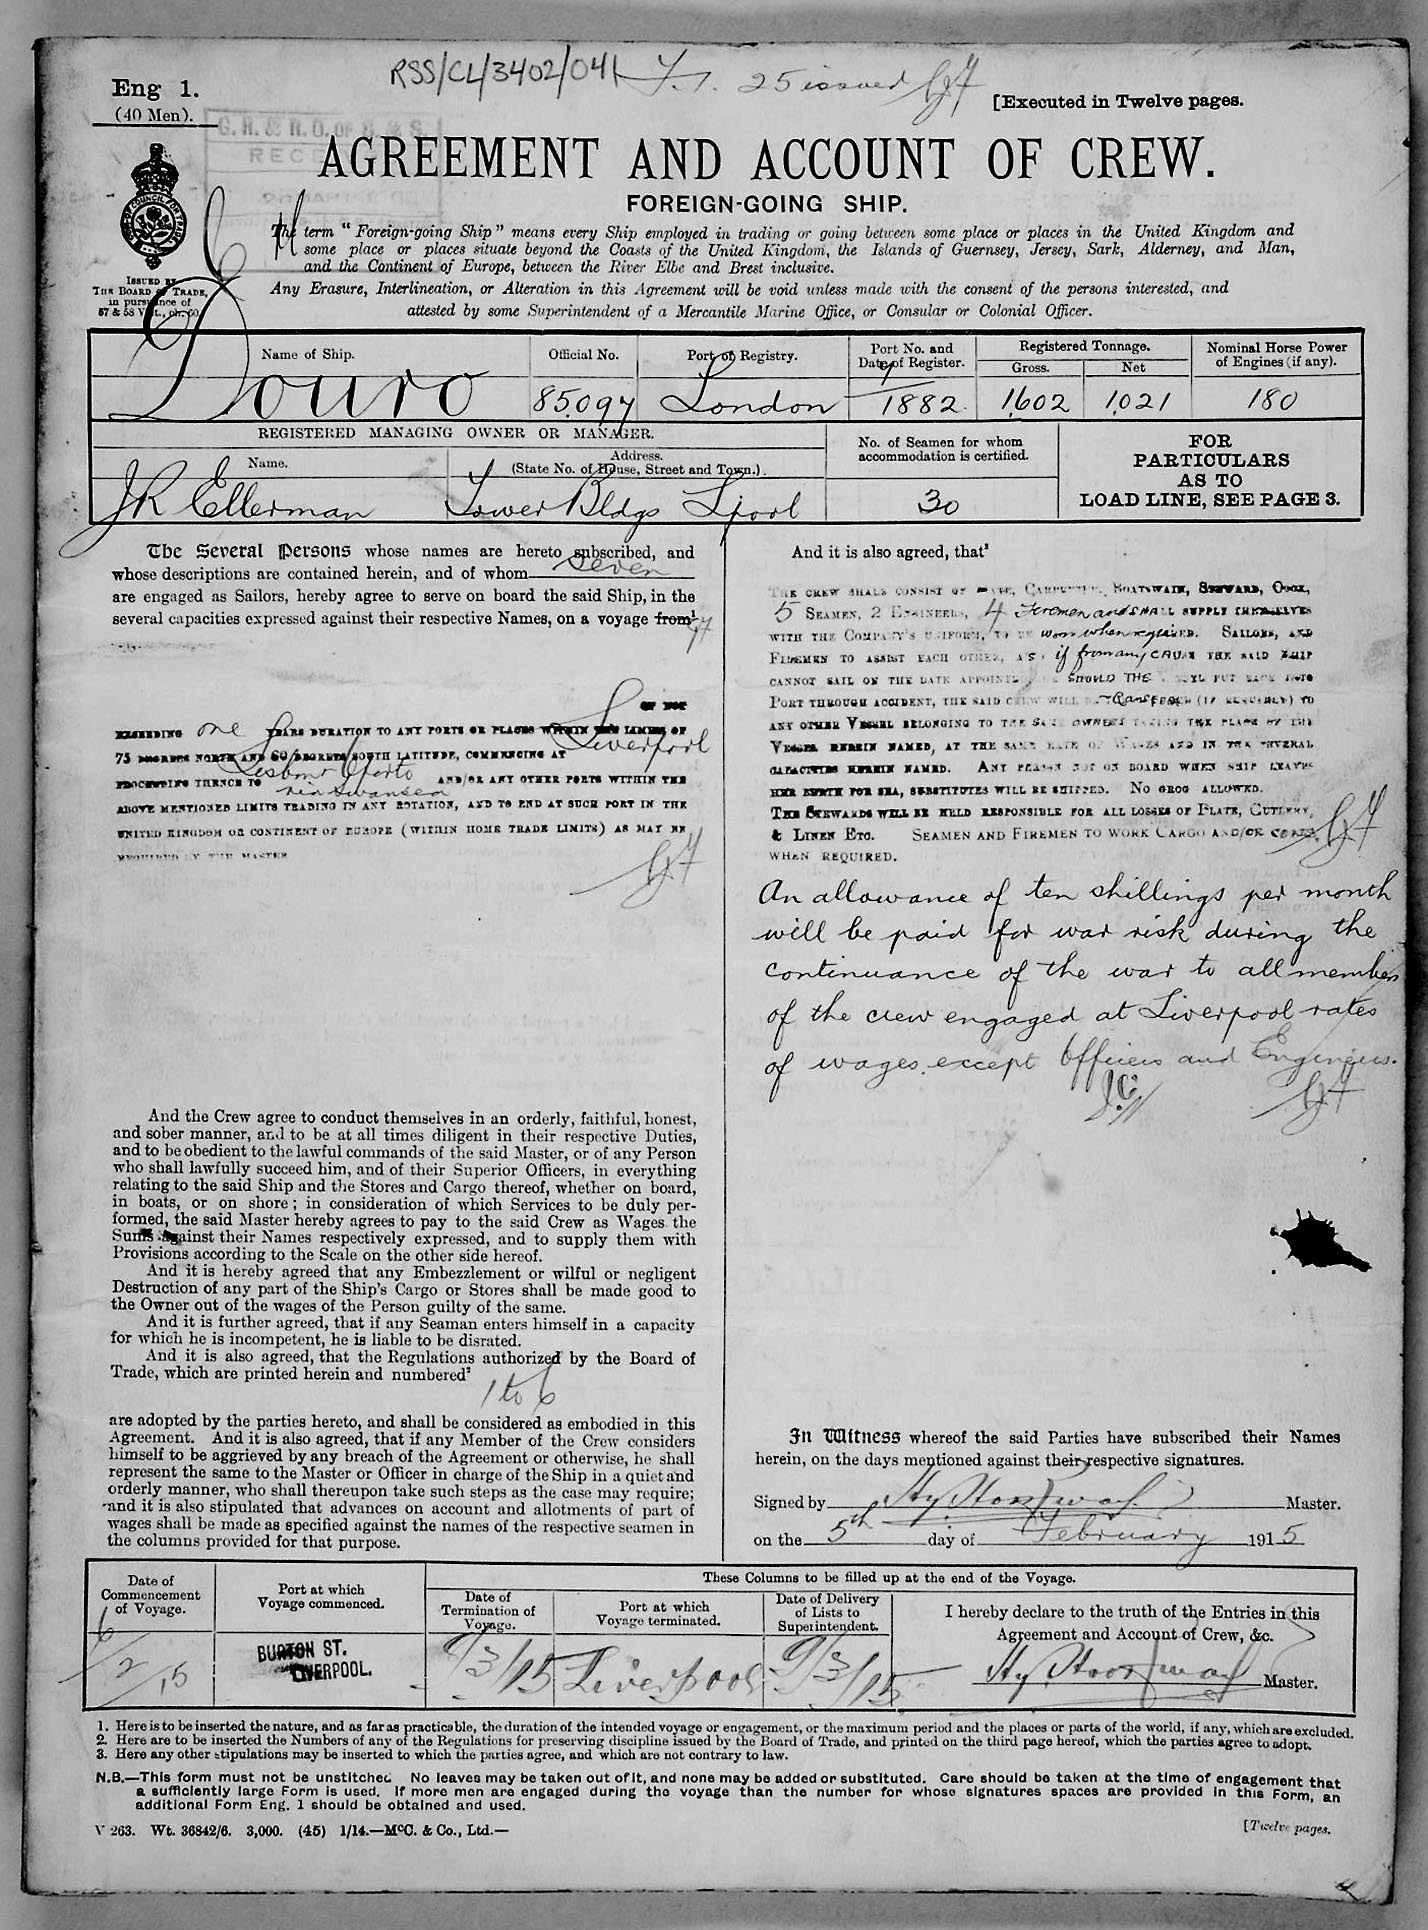 RSS/CL/3402/041
25 issued
Eng 1.
(40 Men).
[Executed in Twelve pages.
G. R. & R. O. OF S. & S.
AGREEMENT AND ACCOUNT OF CREW.
FOREIGN-GOING SHIP.
The term "Foreign-going Ship" means every Ship employed in trading or going between some place or places in the United Kingdom and
some place or places situate beyond the Coasts of the United Kingdom, the Islands of Guernsey, Jersey, Sark, Alderney, and Man,
and the Continent of Europe, between the River Elbe and Brest inclusive.
Any Erasure, Interlineation, or Alteration in this Agreement will be void unless made with the consent of the persons interested, and
attested by some Superintendent of a Mercantile Marine Office, or Consular or Colonial Officer.
ISSUED BY
THE BOARD OF TRADE,
in pursuance of
57 & 58 Vict., ch. 60.
Name of Ship. Official No. Port of Registry. Port No. and Date of Register. Registered Tonnage. Gross. Net Nominal Horse Power of Engines (if any).
Douro 85.097 London 1882 1602 1021 180
REGISTERED MANAGING OWNER OR MANAGER.
Name. Address. (State No. of House, Street and Town.) No. of Seamen for whom accommodation is certified.
FOR
PARTICULARS
AS TO
LOAD LINE, SEE PAGE 3.
JR Ellerman Tower Bldgs Lpool 30
The Several Persons whose names are hereto subscribed, and
whose descriptions are contained herein, and of whom seven
are engaged as Sailors, hereby agree to serve on board the said Ship, in the
several capacities expressed against their respective Names, on a voyage from¹
OF NOT
EXCEEDING one YEARS DURATION TO ANY PORTS OR PLACES WITHIN THE LIMITS OF
75 DEGREES NORTH AND 60 DEGREES SOUTH LATITUDE, COMMENCING AT Liverpool
PROCEEDING THENCE TO Lisbon & Oporto via Swansea AND/OR ANY OTHER PORTS WITHIN THE
ABOVE MENTIONED LIMITS TRADING IN ANY ROTATION, AND TO END AT SUCH PORT IN THE
UNITED KINGDOM OR CONTINENT OF EUROPE (WITHIN HOME TRADE LIMITS) AS MAY BE
REQUIRED BY THE MASTER
And the Crew agree to conduct themselves in an orderly, faithful, honest,
and sober manner, and to be at all times diligent in their respective Duties,
and to be obedient to the lawful commands of the said Master, or of any Person
who shall lawfully succeed him, and of their Superior Officers, in everything
relating to the said Ship and the Stores and Cargo thereof, whether on board,
in boats, or on shore; in consideration of which Services to be duly per-
formed, the said Master hereby agrees to pay to the said Crew as Wages the
Sums against their Names respectively expressed, and to supply them with
Provisions according to the Scale on the other side hereof.
And it is hereby agreed that any Embezzlement or wilful or negligent
Destruction of any part of the Ship's Cargo or Stores shall be made good to
the Owner out of the wages of the Person guilty of the same.
And it is further agreed, that if any Seaman enters himself in a capacity
for which he is incompetent, he is liable to be disrated.
And it is also agreed, that the Regulations authorized by the Board of
Trade, which are printed herein and numbered²
1 to 6
are adopted by the parties hereto, and shall be considered as embodied in this
Agreement. And it is also agreed, that if any Member of the Crew considers
himself to be aggrieved by any breach of the Agreement or otherwise, he shall
represent the same to the Master or Officer in charge of the Ship in a quiet and
orderly manner, who shall thereupon take such steps as the case may require;
and it is also stipulated that advances on account and allotments of part of
wages shall be made as specified against the names of the respective seamen in
the columns provided for that purpose.
And it is also agreed, that³
THE CREW SHALL CONSIST OF MATE, CARPENTER, BOATSWAIN, STEWARD, COOK,
5 SEAMEN, 2 ENGINEERS, 4 Firemen and SHALL SUPPLY THEMSELVES
WITH THE COMPANY'S UNIFORM, TO BE worn when required. SAILORS, AND
FIREMEN TO ASSIST EACH OTHER, AND if from any CAUSE THE SAID SHIP
CANNOT SAIL ON THE DATE APPOINTED, OR SHOULD THE VESSEL PUT BACK INTO
PORT THROUGH ACCIDENT, THE SAID CREW WILL BE TRANSFERRED (IF REQUIRED) TO
ANY OTHER VESSEL BELONGING TO THE SAME OWNERS TAKING THE PLACE OF THE
VESSEL HEREIN NAMED, AT THE SAME RATE OF WAGES AND IN THE SEVERAL
CAPACITIES HEREIN NAMED. ANY PERSON NOT ON BOARD WHEN SHIP LEAVES
HER BERTH FOR SEA, SUBSTITUTES WILL BE SHIPPED. NO GROG ALLOWED.
THE STEWARDS WILL BE HELD RESPONSIBLE FOR ALL LOSSES OF PLATE, CUTLERY,
& LINEN ETC. SEAMEN AND FIREMEN TO WORK CARGO AND/OR COALS,
WHEN REQUIRED.
An allowance of ten shillings per month
will be paid for war risk during the
continuance of the war to all members
of the crew engaged at Liverpool rates
of wages except Officers and Engineers.
In Witness whereof the said Parties have subscribed their Names
herein, on the days mentioned against their respective signatures.
Signed by Master.
on the 5th day of February 1915
Date of Commencement of Voyage. Port at which Voyage commenced. These Columns to be filled up at the end of the Voyage.
Date of Termination of Voyage. Port at which Voyage terminated. Date of Delivery of Lists to Superintendent. I hereby declare to the truth of the Entries in this Agreement and Account of Crew, &c.
6/2/15 BURTON ST. LIVERPOOL. 9/3/15 Liverpool 9/3/15 Master.
1. Here is to be inserted the nature, and as far as practicable, the duration of the intended voyage or engagement, or the maximum period and the places or parts of the world, if any, which are excluded.
2. Here are to be inserted the Numbers of any of the Regulations for preserving discipline issued by the Board of Trade, and printed on the third page hereof, which the parties agree to adopt.
3. Here any other stipulations may be inserted to which the parties agree, and which are not contrary to law.
N.B.—This form must not be unstitched. No leaves may be taken out of it, and none may be added or substituted. Care should be taken at the time of engagement that
a sufficiently large Form is used. If more men are engaged during the voyage than the number for whose signatures spaces are provided in this Form, an
additional Form Eng. 1 should be obtained and used.
V 263. Wt. 36842/6. 3,000. (45) 1/14.—McC. & Co., Ltd.—
[Twelve pages.